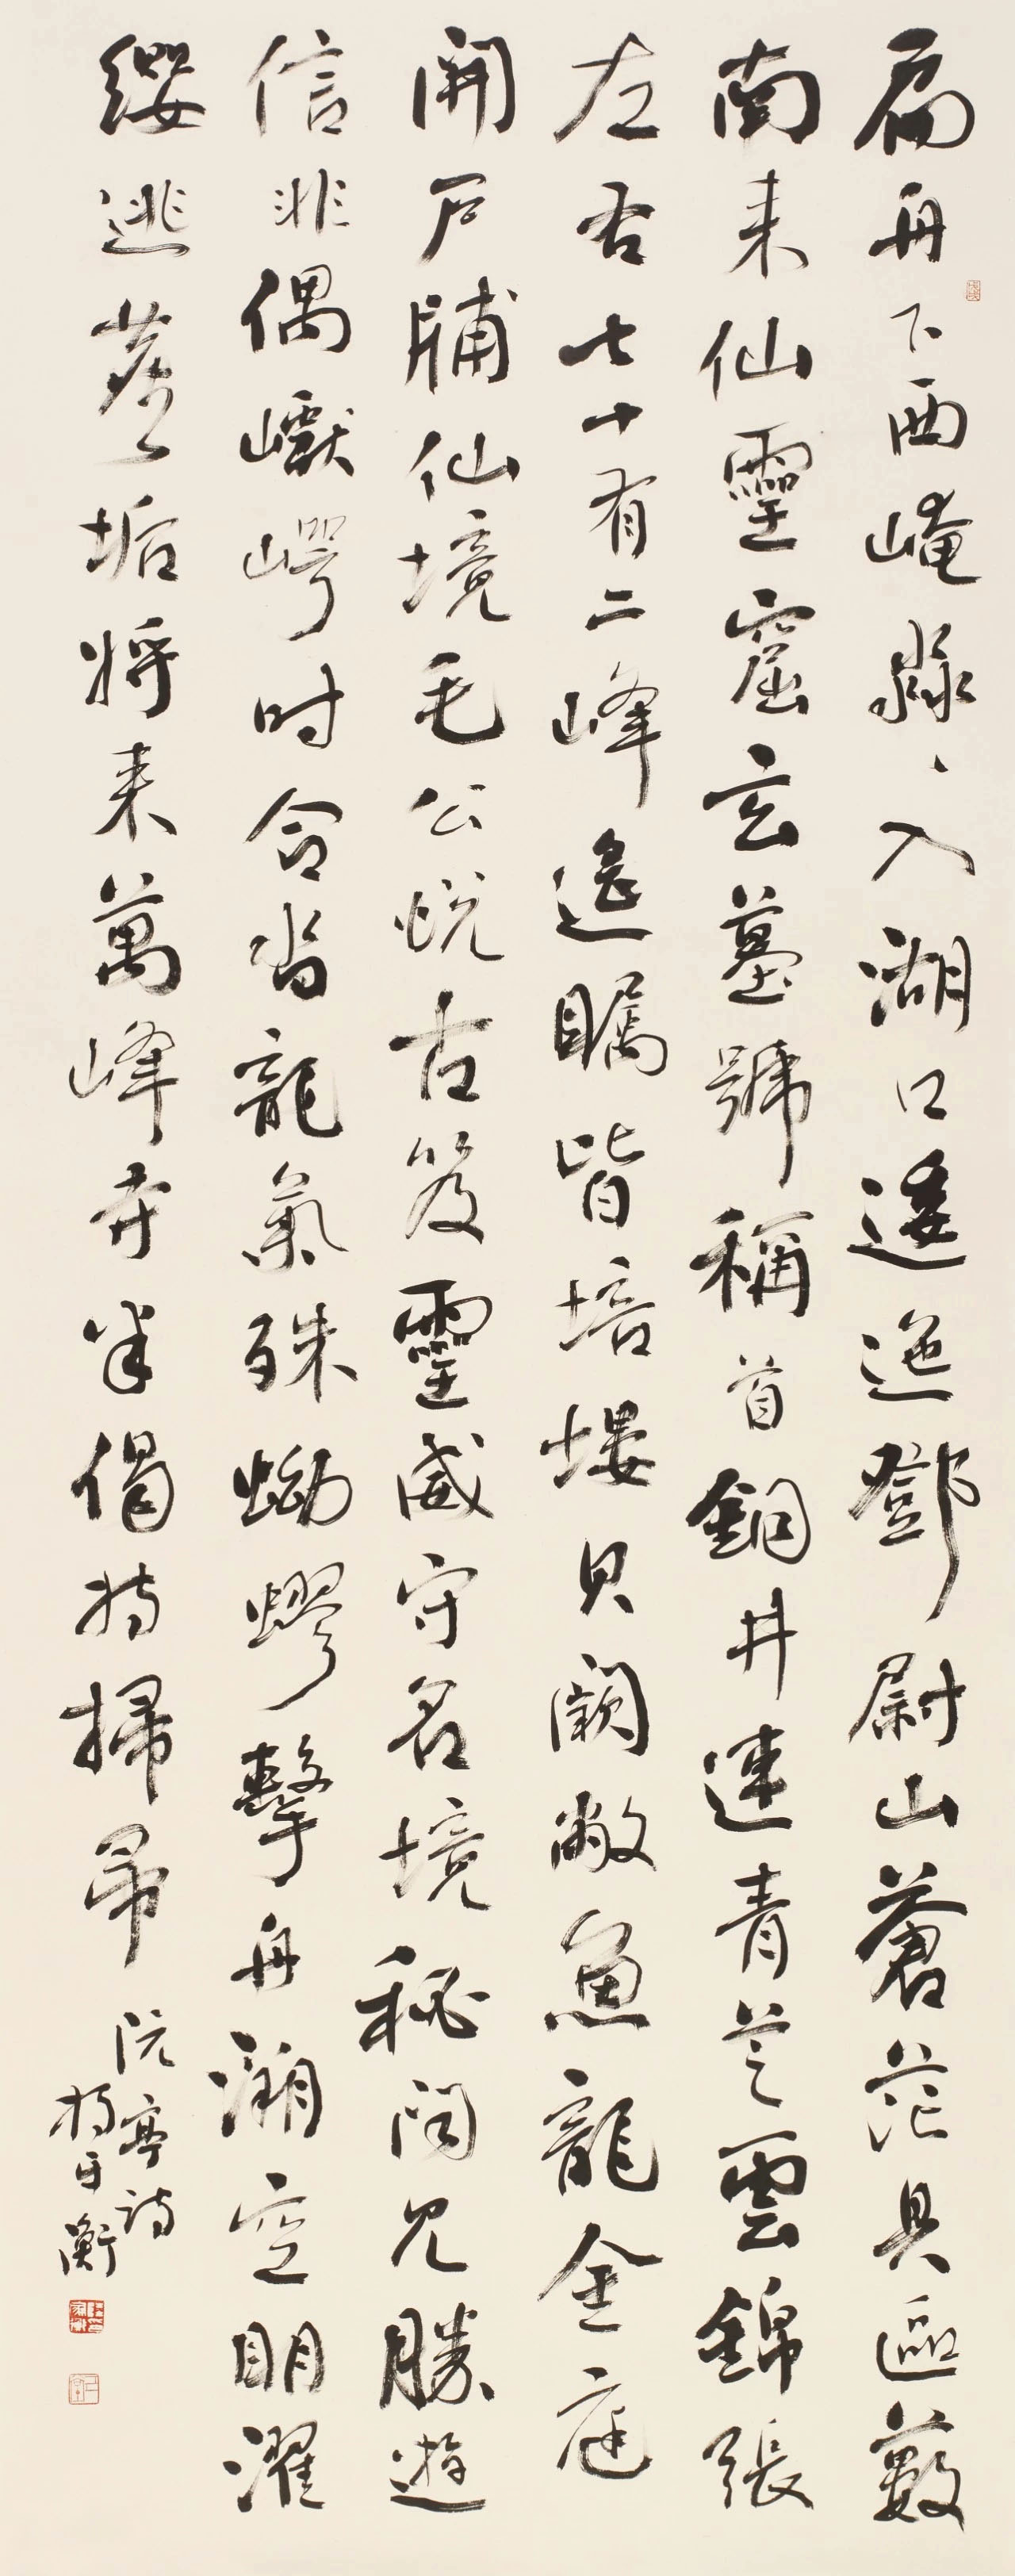 扁舟下西崦淼、入湖口逶迤鄧尉山蒼茫具區藪
南來仙靈窟玄墓號稱首銅井連青芝雲錦張
左右七十有二峰遙矚皆培塿貝闕敝魚龍金庭
開戶牖仙境毛公恍古笈靈威守名境秘閟見勝遊
信非偶巘崿時合沓龍氣殊蚴蟉擊舟溯空明濯
纓逃塵垢將來萬峰寺半偈持掃帚
阮亭詩
楊平衡